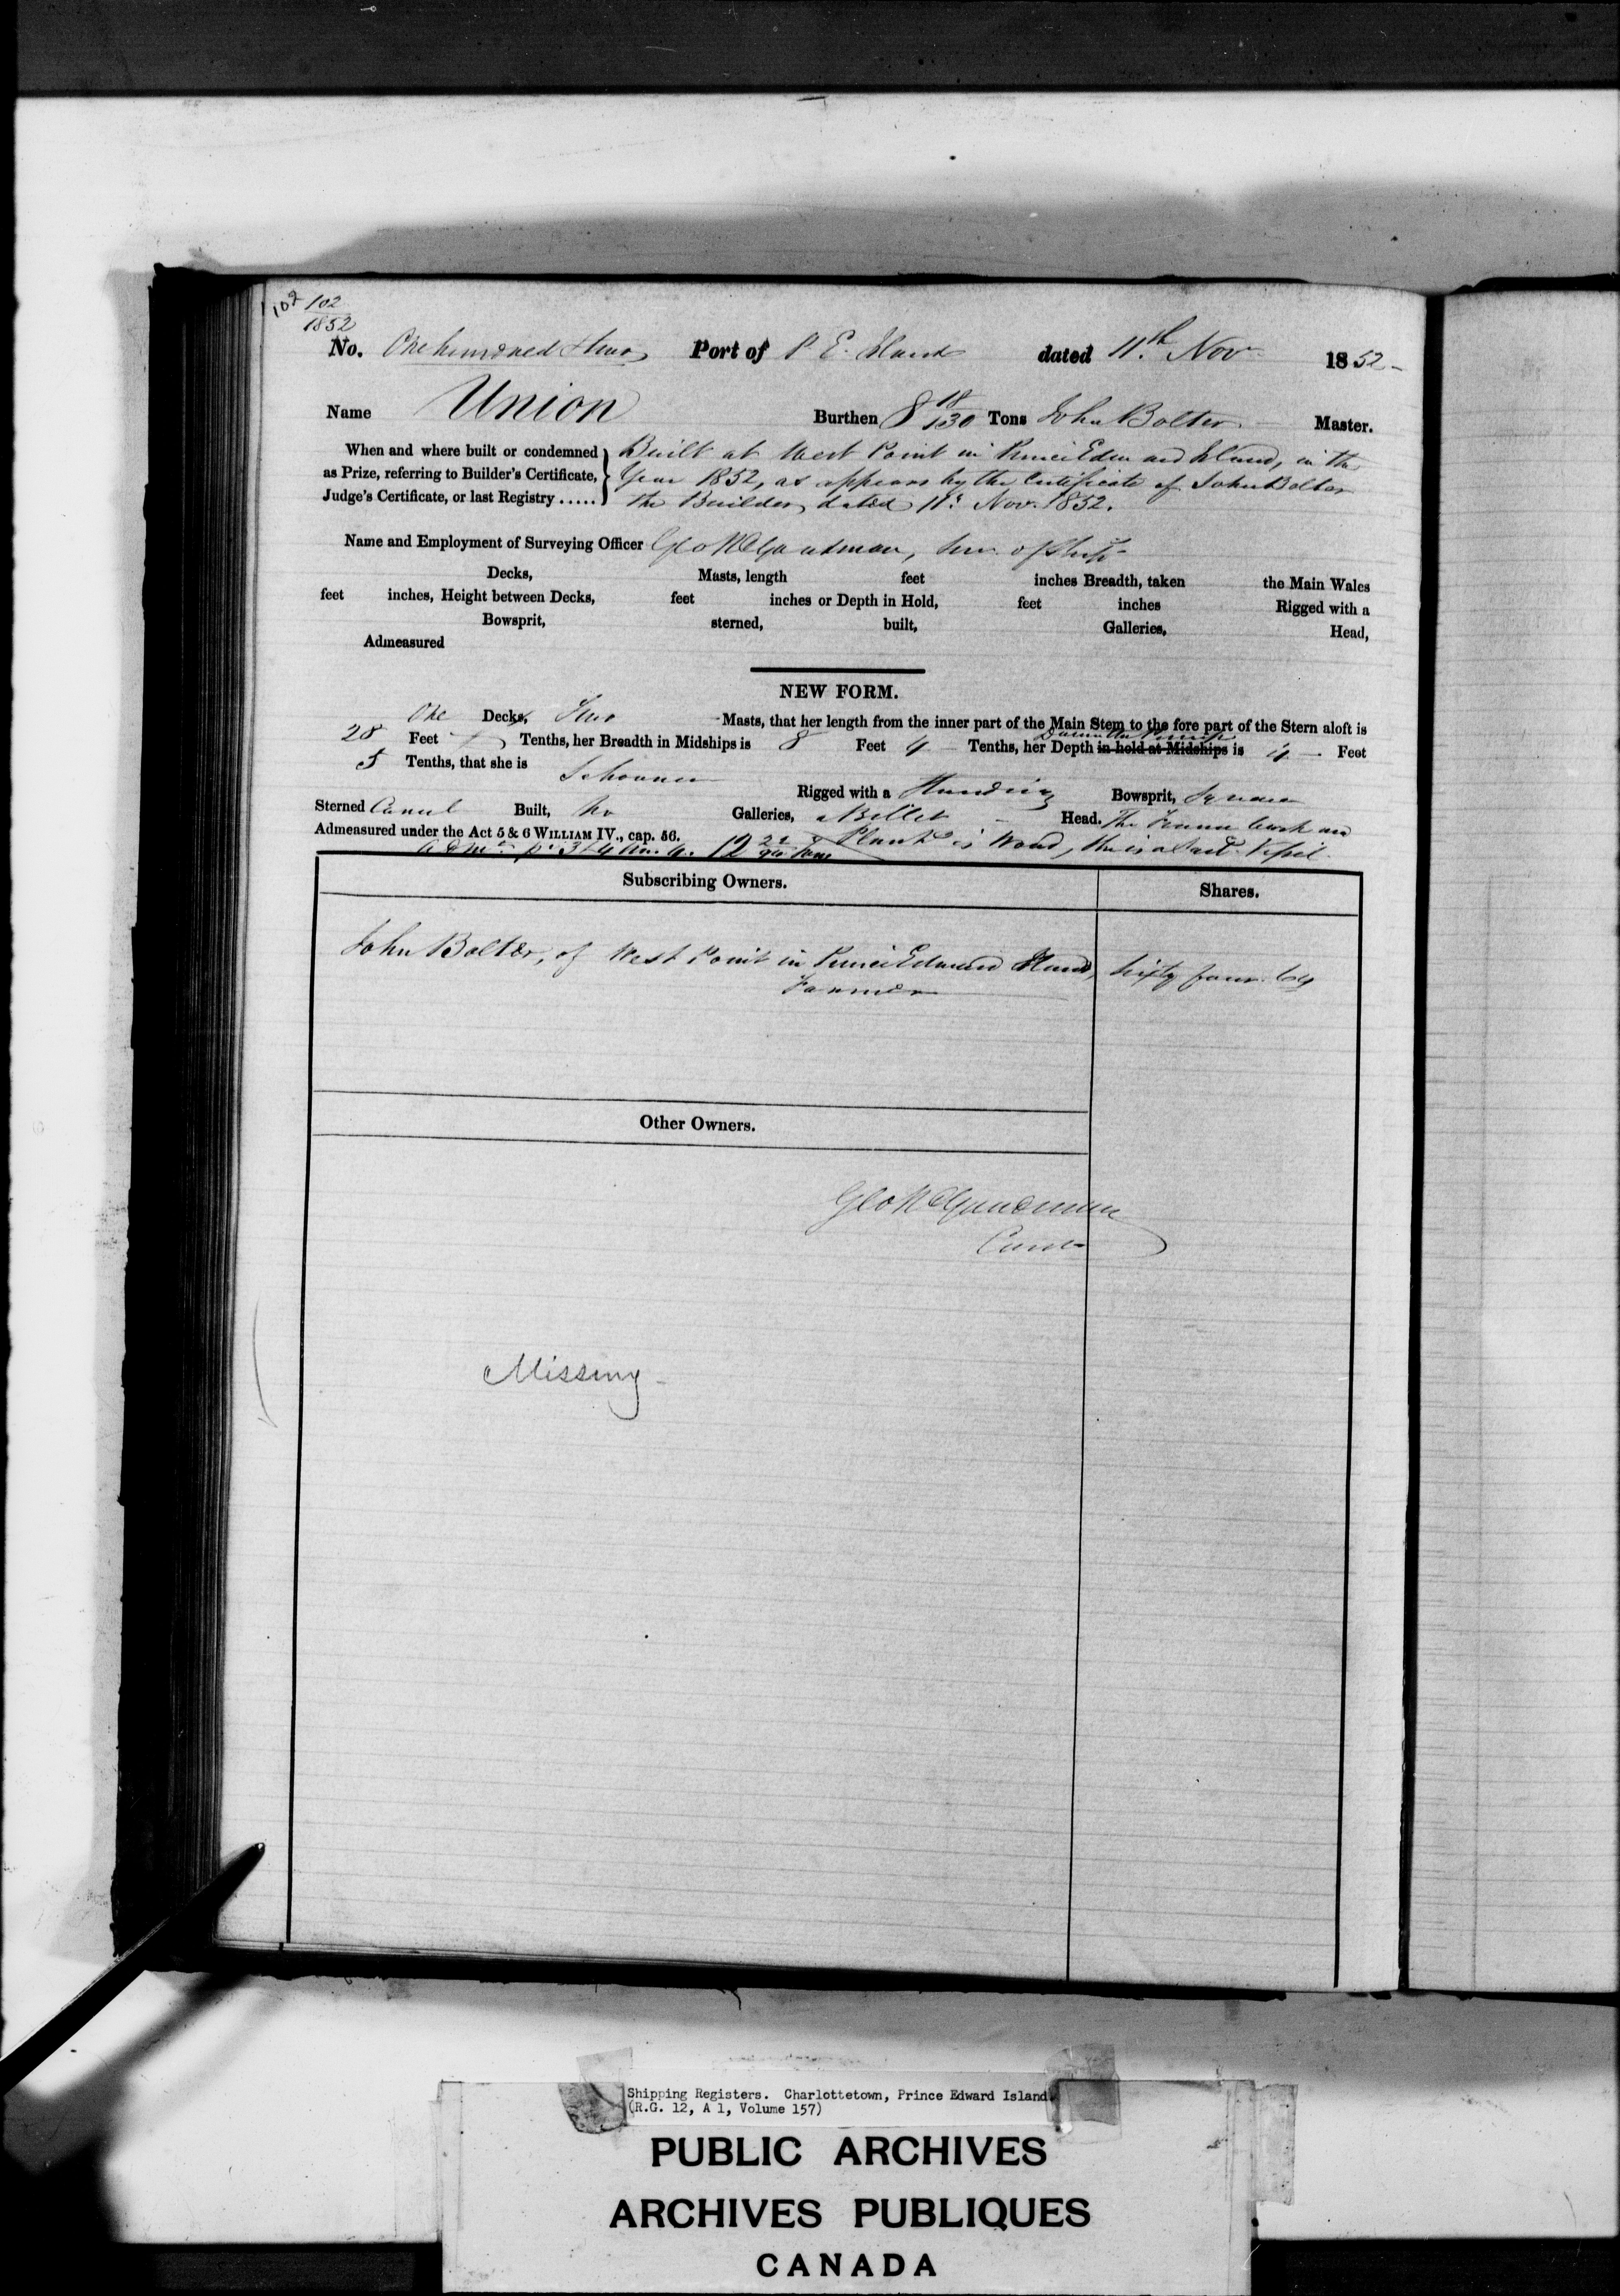 102 102
1852
No. One hundred & two Port of P. E. Island dated 11th Nov 1852
Name Union Burthen 8 18/130 Tons John Bolter Master.
When and where built or condemned as Prize, referring to Builder's Certificate, Judge's Certificate, or last Registry .....
Built at West Point in Prince Edward Island, in the
Year 1852, as appears by the Certificate of John Bolter
the Builder, dated 11: Nov. 1852.
Name and Employment of Surveying Officer Geo R Goodman, Surv. of Ship
Decks, Masts, length feet inches Breadth, taken the Main Wales
feet inches, Height between Decks, feet inches or Depth in Hold, feet inches Rigged with a
Bowsprit, sterned, built, Galleries, Head,
Admeasured
NEW FORM.
One Decks, Two Masts, that her length from the inner part of the Main Stem to the fore part of the Stern aloft is
28 Feet Tenths, her Breadth in Midships is 8 Feet 4 Tenths, her Depth in hold at Midships is 4 Feet
5 Tenths, that she is Schooner Rigged with a Standing Bowsprit, Square
Sterned Carvel Built, No Galleries, a Billet Head. The Frame Work and
Admeasured under the Act 5 & 6 WILLIAM IV., cap. 56. Plank is Wood, she is a Sail Vessel
12 Tons
Subscribing Owners. Shares.
John Bolter, of West Point in Prince Edward Island, Sixty four 64
Farmer
Other Owners.
Geo R Goodman
Missing
Shipping Registers. Charlottetown, Prince Edward Island.
(R.G. 12, A 1, Volume 157)
PUBLIC ARCHIVES
ARCHIVES PUBLIQUES
CANADA